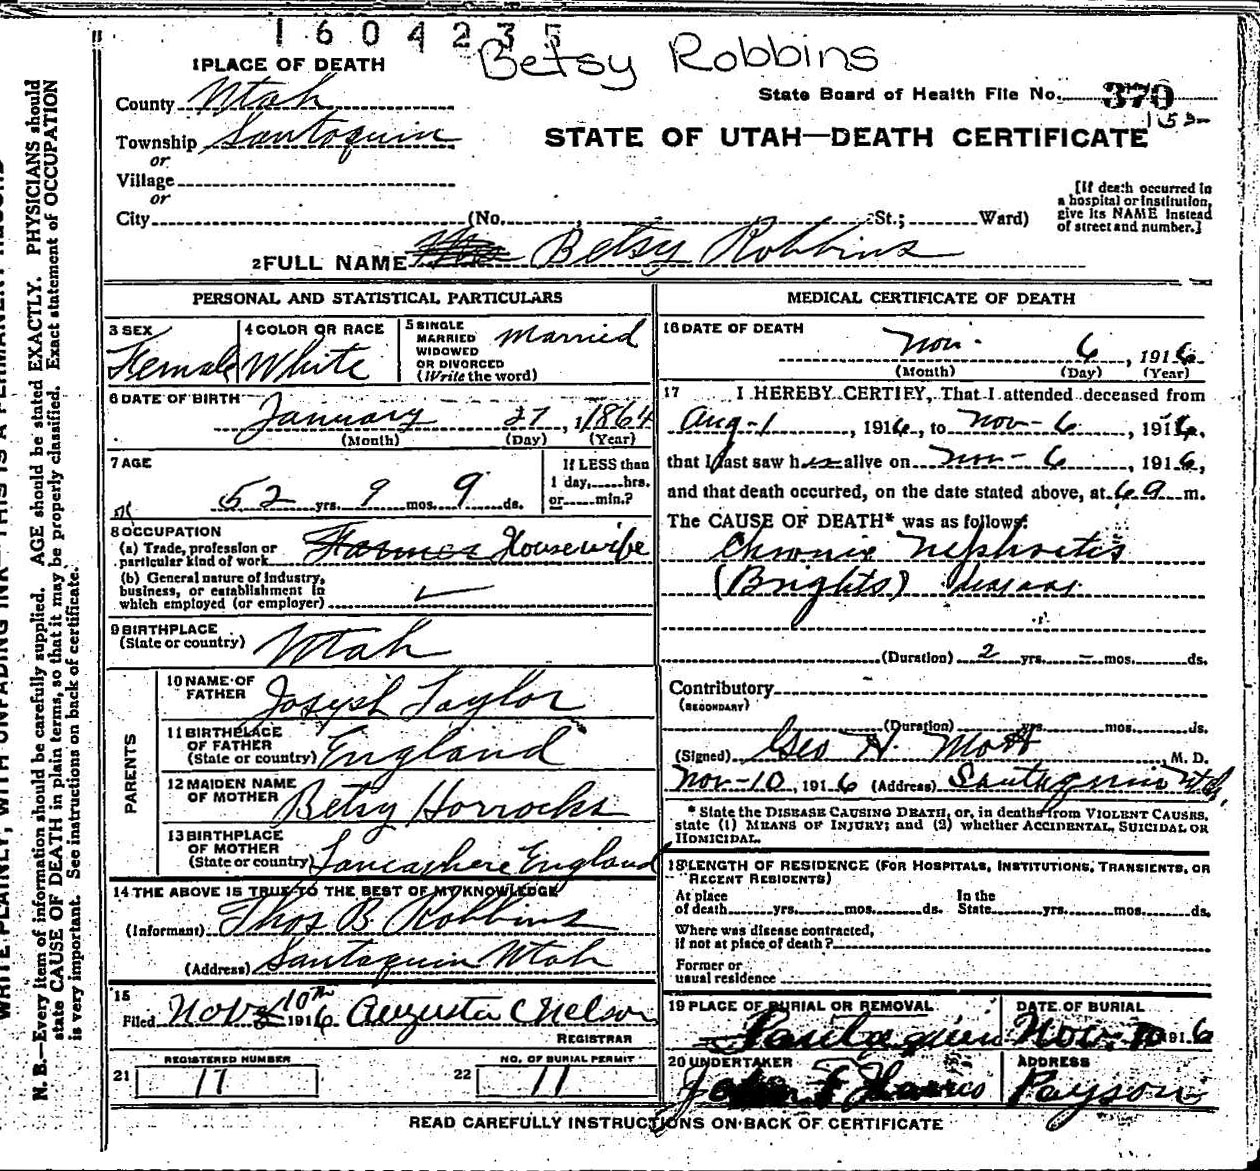 1604235
Betsy Robbins
1 PLACE OF DEATH
County Utah
State Board of Health File No. 370
Township Santaquin
STATE OF UTAH—DEATH CERTIFICATE
or
Village
or
City (No. , St.; Ward)
[If death occurred in a hospital or institution, give its NAME instead of street and number.]
2 FULL NAME Betsy Robbins
PERSONAL AND STATISTICAL PARTICULARS
3 SEX Female
4 COLOR OR RACE White
5 SINGLE MARRIED WIDOWED OR DIVORCED (Write the word) Married
6 DATE OF BIRTH January 27, 1864
(Month) (Day) (Year)
7 AGE 52 yrs. 9 mos. 9 ds.
If LESS than 1 day, hrs. or min.?
8 OCCUPATION
(a) Trade, profession or particular kind of work Farmer Housewife
(b) General nature of industry, business, or establishment in which employed (or employer)
9 BIRTHPLACE (State or country) Utah
PARENTS
10 NAME OF FATHER Joseph Taylor
11 BIRTHPLACE OF FATHER (State or country) England
12 MAIDEN NAME OF MOTHER Betsy Horrocks
13 BIRTHPLACE OF MOTHER (State or country) Lancashere England
14 THE ABOVE IS TRUE TO THE BEST OF MY KNOWLEDGE
(Informant) Thos B. Robbins
(Address) Santaquin Utah
15 Filed Nov 10th 1916 Augusta C Nelson
REGISTRAR
REGISTERED NUMBER
21 17
NO. OF BURIAL PERMIT
22 11
MEDICAL CERTIFICATE OF DEATH
16 DATE OF DEATH Nov. 6, 1916
(Month) (Day) (Year)
17 I HEREBY CERTIFY, That I attended deceased from
Aug-1, 1916, to Nov-6, 1916,
that I last saw her alive on Nov-6, 1916,
and that death occurred, on the date stated above, at 6 a m.
The CAUSE OF DEATH* was as follows:
Chronic Nephritis
(Brights) disease
(Duration) 2 yrs. – mos. ds.
Contributory
(SECONDARY)
(Duration) yrs. mos. ds.
(Signed) Geo H. Mott M. D.
Nov-10, 1916 (Address) Santaquin Utah
* State the DISEASE CAUSING DEATH, or, in deaths from VIOLENT CAUSES, state (1) MEANS OF INJURY; and (2) whether ACCIDENTAL, SUICIDAL OR HOMICIDAL.
18 LENGTH OF RESIDENCE (FOR HOSPITALS, INSTITUTIONS, TRANSIENTS, OR RECENT RESIDENTS)
At place of death yrs. mos. ds. In the State yrs. mos. ds.
Where was disease contracted, if not at place of death?
Former or usual residence
19 PLACE OF BURIAL OR REMOVAL Santaquin
DATE OF BURIAL Nov. 10 1916
20 UNDERTAKER John F
ADDRESS Payson
READ CAREFULLY INSTRUCTIONS ON BACK OF CERTIFICATE
WRITE PLAINLY, WITH UNFADING INK—THIS IS A PERMANENT RECORD
N. B.—Every item of information should be carefully supplied. AGE should be stated EXACTLY. PHYSICIANS should
state CAUSE OF DEATH in plain terms, so that it may be properly classified. Exact statement of OCCUPATION
is very important. See instructions on back of certificate.